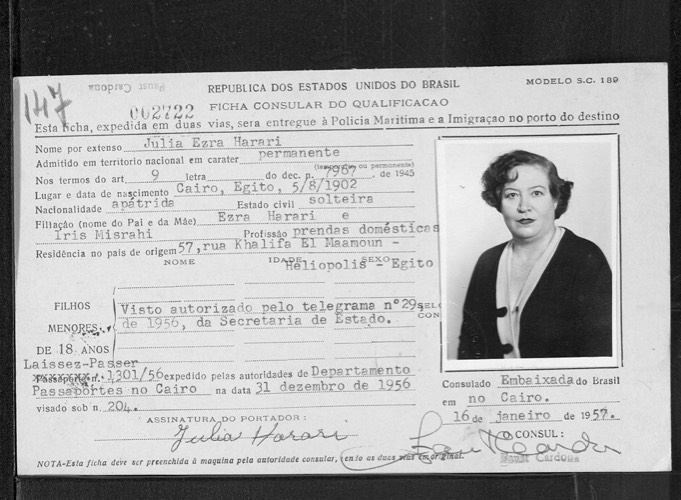 147
Faust Cardona
REPUBLICA DOS ESTADOS UNIDOS DO BRASIL
MODELO S.C. 139
002722
FICHA CONSULAR DO QUALIFICACAO
Esta ficha, expedida em duas vias, sera entregue à Policia Maritima e a Imigraçao no porto do destino
Nome por extenso Julia Ezra Harari
Admitido em territorio nacional em carater permanente
(temporario ou permanente)
Nos termos do art 9 letra do dec. n. 7967 de 1945
Lugar e data de nascimento Cairo, Egito, 5/8/1902
Nacionalidade apátrida Estado civil solteira
Filiação (nome do Pai e da Mãe) Ezra Harari e
Iris Misrahi Profissão prendas domésticas
Residência no pais de origem 57, rua Khalifa El Maamoun -
NOME IDADE SEXO
Héliopolis - Egito
FILHOS
MENORES
DE 18 ANOS
Visto autorizado pelo telegrama n° 29,
de 1956, da Secretaria de Estado.
SELO
CON
Laissez-Passer
Passaporte n. 1301/56 expedido pelas autoridades de Departamento
Passaportes no Cairo na data 31 dezembro de 1956
visado sob n. 204.
ASSINATURA DO PORTADOR:
Julia Harari
Consulado Embaixada do Brasil
em no Cairo.
16 de janeiro de 1957.
O CONSUL:
Faust Cardona
NOTA-Esta ficha deve ser preenchida à maquina pela autoridade consular, sendo as duas vias em original.